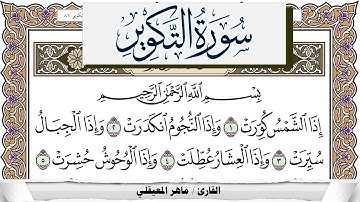 سورة التكوير
بِسْمِ اللَّهِ الرَّحْمَٰنِ الرَّحِيمِ
إِذَا الشَّمْسُ كُوِّرَتْ ١ وَإِذَا النُّجُومُ انْكَدَرَتْ ٢ وَإِذَا الْجِبَالُ
سُيِّرَتْ ٣ وَإِذَا الْعِشَارُ عُطِّلَتْ ٤ وَإِذَا الْوُحُوشُ حُشِرَتْ ٥
القارئ / ماهر المعيقلي